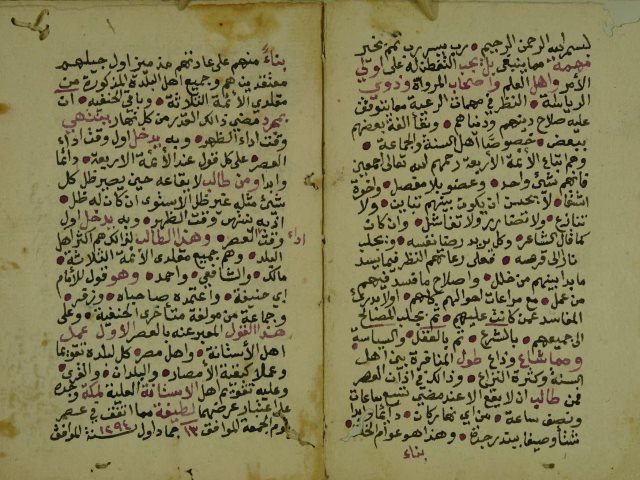 بسم الله الرحمن الرحيم • رب يسر يا كريم تمم بخير
مهمة • مما ينبغي بل يجب التفطن له على اولي
الأمر واهل العلم واصحاب المروأة وذوي
الرياسة • النظر في مهمات الرعية مما يتوقف
عليه صلاح دينهم ودنياهم • وتألفة بعضهم
ببعض • خصوصًا أهل السنة والجماعة •
وهم اتباع الأئمة الأربعة رحمهم الله تعالى اجمعين
فانهم شئ واحد • وعضو بلا مفصل • واخوة
اشقا • لا يحسن ان يكون بينهم تباين • ولا
تنازع • ولا تضارر ولا تفاشل • وان كان
كما قال الشاعر • وكل يريد رصا نفسه • ويجلب
نارا الى قرصه • فعلى رعاتهم النظر فيما يسد
ما بدا بينهم من خلل • واصلاح ما فسد فيهم
من عمل • مع مراعات احوالهم كلهم • اولا بدرء
المفاسد عمن كانت عليهم • ثم بجلب المصالح
الى جميعهم • بالشرع • ثم بالعقل • والسياسة
ومما شاع وذاع طول المنافرة بين اهل
السنة وكثرة النزاع • وذالك في اذان العصر
فمن طالب ان لا يقع الا عند مضي تسع ساعات
ونصف ساعة • من اي نهار كان • دائمًا وابدا
شتأ وصيفا بيندر جدة • وهذا هو عوام الحنفية
بناء
بناءً منهم على عادتهم هذه من اول جيلهم
معتقدين هم وجميع اهل البلدة المذكورة من
مقلدي الأئمة الثلاثة • وباقي الحنفية • ان
بمجرد مضي ذالك القدر من كل نهار ينتهي
وقت اداء الظهر • وبه يدخل اول وقت اداء
العصر على كل قول عند الأئمة الاربعة • دائما
وابدا ومن طالب لايقاعه حين يصير ظل كل
شئ مثله غير ظل الاستوى ان كان له ظل •
اذ به ينتهي وقت الظهر • وبه يدخل اول
وقت اداء العصر • وهذا الطالب لذالك هم اكثر اهل
البلد • وهم جميع مقلدي الأئمة الثلاثة •
مالك • والشافعي • واحمد • وهو قول للأمام
ابي حنيفة • واعتمده صاحباه • وزفر •
وجماعة من مؤلفة متأخري الحنفية • وعلى
هذا القول المعبر عنه بالعصر الأول عمل
اهل الأستانة • واهل مصر • كل بلده تقويما
وعملا وكبقية الأمصار • والبلدان • والذي
وعليه تقويم اهل الاستانة العلية ملكة وجده
على اعتبار عرضهما لطيفة مما اتفق في عصر
يوم الجمعة الموافق ١٣ جماد اول سنة ١٢٩٤ الموافق